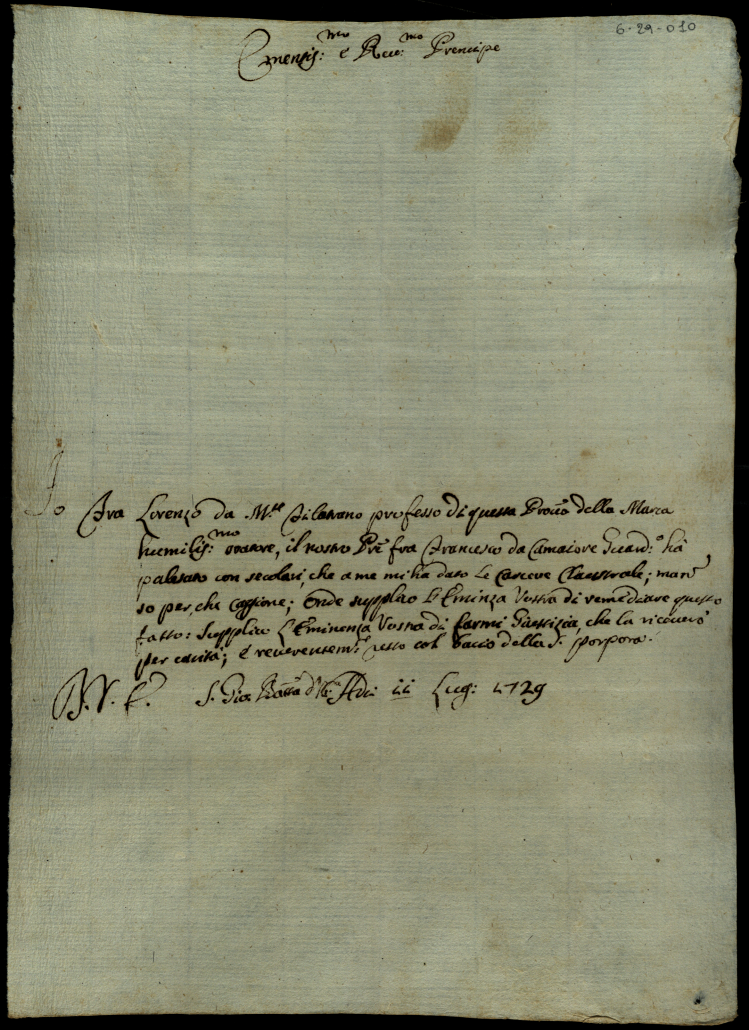 6-29-010
Emensis:mo e Reu:mo Prencipe
Io Fra Lorenzo da M.te Filatrano professo di questa Prou.a della Marca
humilis:mo oratore, il nostro Prē fra Francesco da Camaiore Guard:o hà
palesato con secolari, che a me mi ha dato le Carcere Claustrale; mà nō
so per che caggione; Onde supplico l'Eminza Vostra di remediare questo
fatto: Supplico l'Eminenza Vostra di farmi Giustizia, che la riceuerò
per carità; e reuerentem:te resto col bacio della S. porpora.
D. V. E. S. Gio: Adi ii Lug: 1729